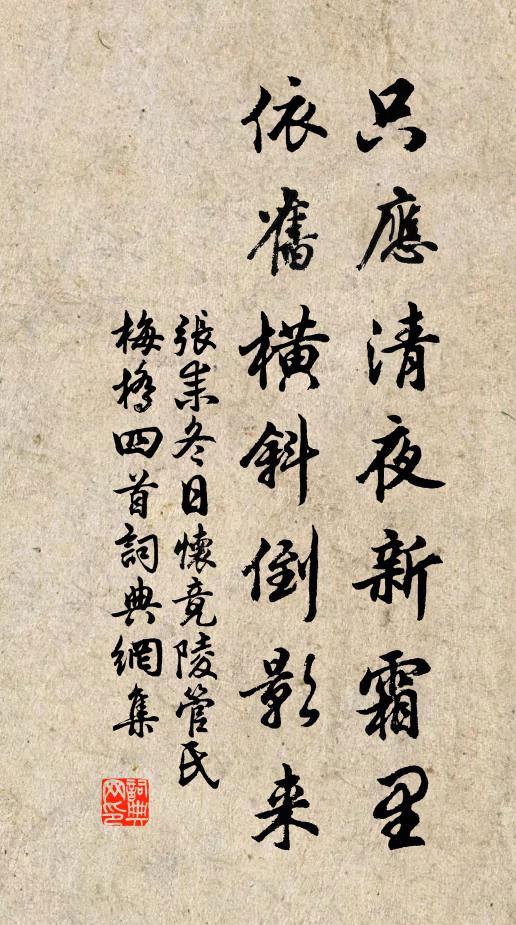 只應清夜新霜里
依舊橫斜倒影来
張耒冬日懷竟陵管氏
梅橋四首詞典網集
詞典网印